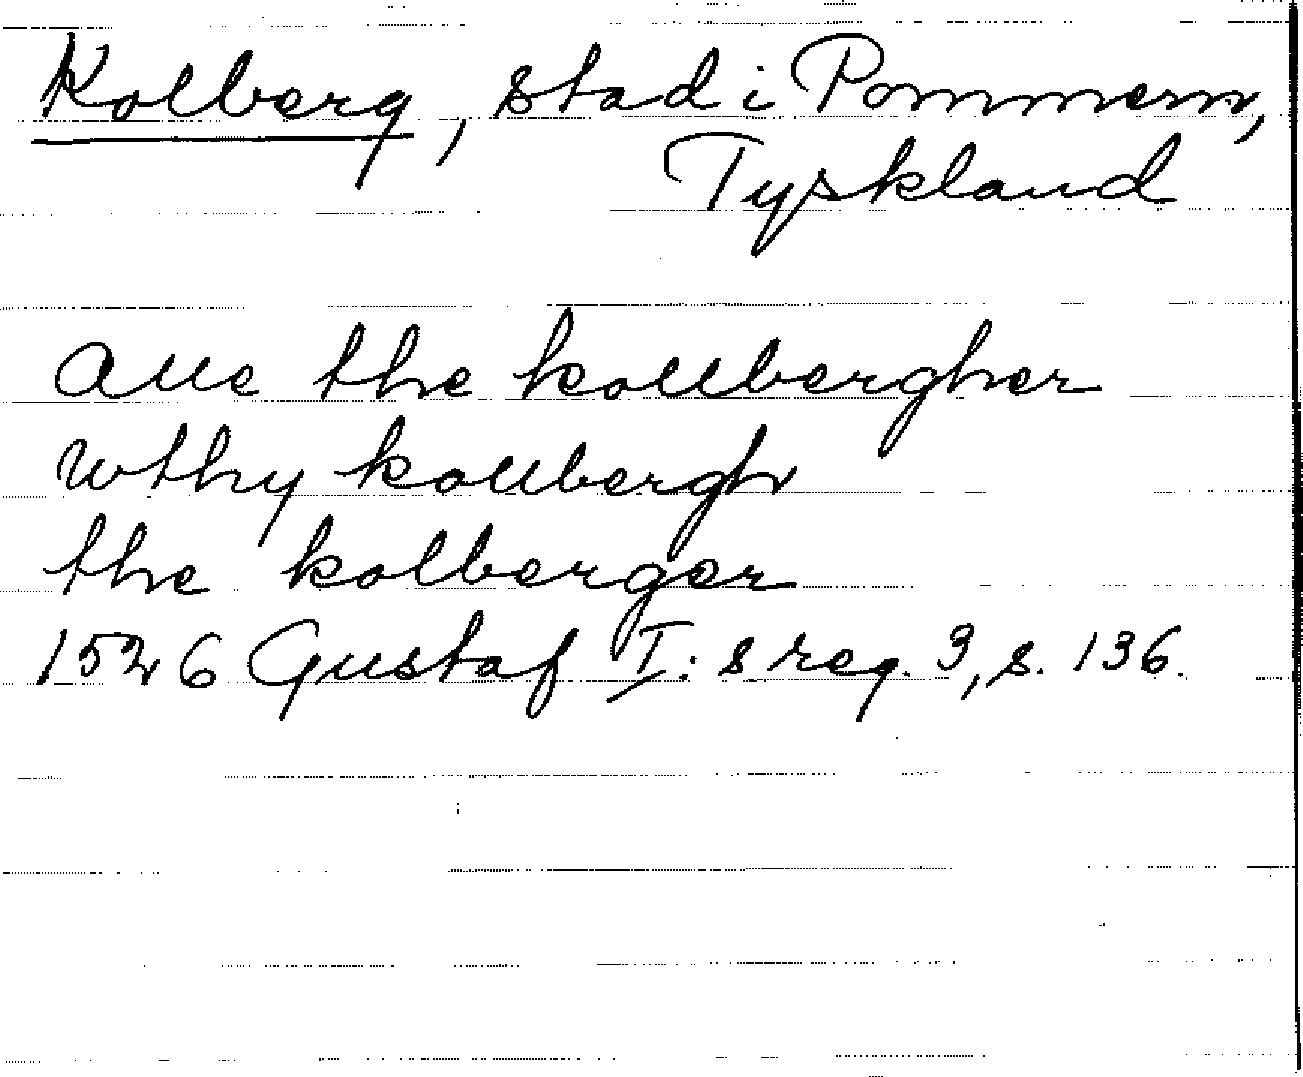 Kolberg, stad i Pommern,
Tyskland
alle the kollbergher
wthy kollbergh
the kolberger
1526 Gustaf I:s reg. 3, s. 136.